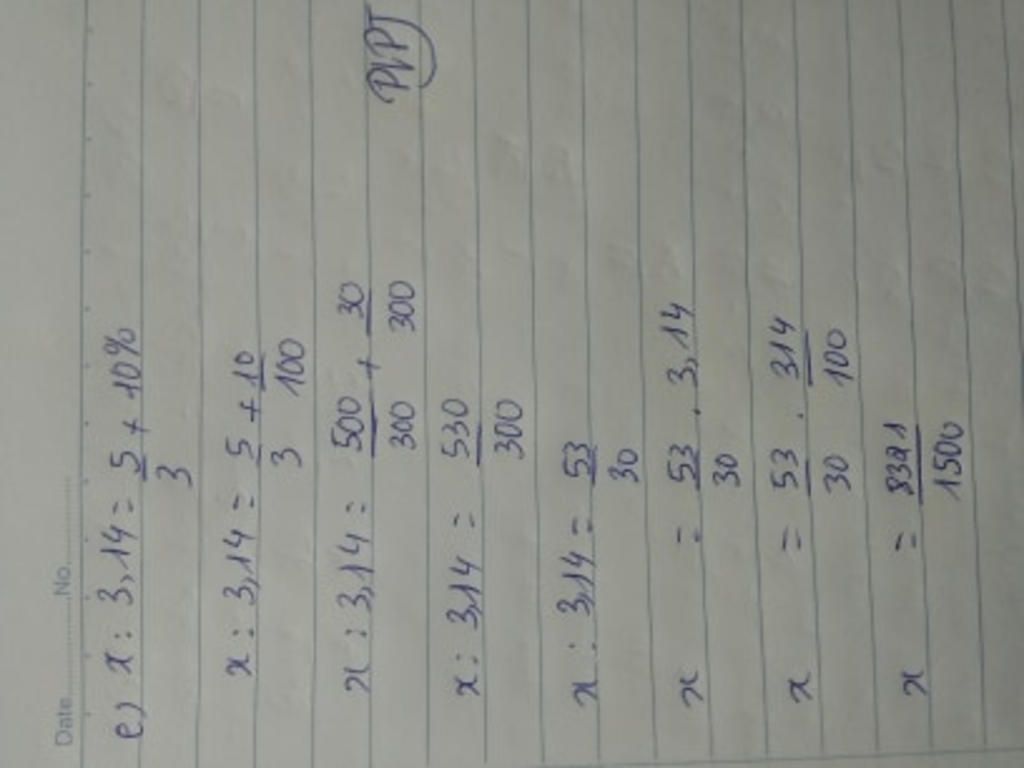 Date............No............
e) x : 3,14 = 5/3 + 10%
x : 3,14 = 5/3 + 10/100
x : 3,14 = 500/300 + 30/300
PVPT
x : 3,14 = 530/300
x : 3,14 = 53/30
x = 53/30 . 3,14
x = 53/30 . 314/100
x = 8321/1500